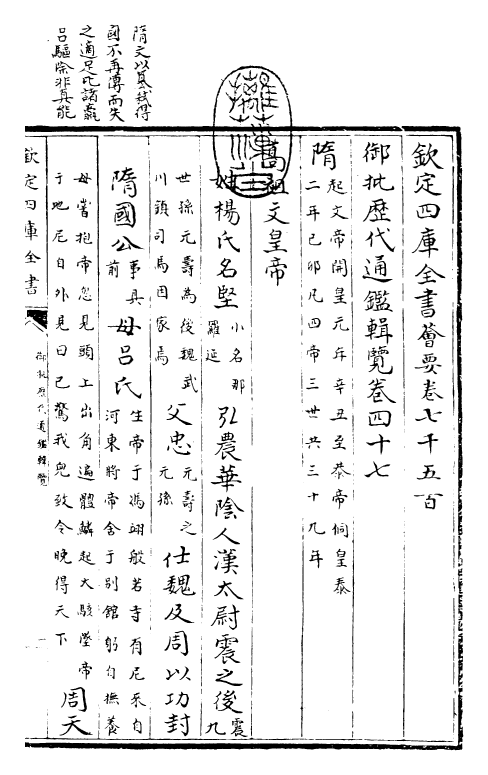 欽定四庫全書薈要卷七千五百
御批歷代通鑑輯覽卷四十七
隋起文帝開皇元年辛丑至恭帝侗皇泰
二年己卯凡四帝三世共三十九年
高祖文皇帝
姓楊氏名堅小名那羅延弘農華陰人漢太尉震之後震九
世孫元壽為後魏武川鎮司馬因家焉父忠元壽之元孫仕魏及周以功封
隋國公事具前母呂氏生帝于馮翊般若寺有尼來自河東將帝舍于别館躬自撫養
母嘗抱帝忽見頭上出角遍體鱗起大駭墜帝于地尼自外見曰已驚我兒致令晚得天下周天
隋文以篡弑得
國不再傳而失
之適足比諸嬴
呂驅除非真能
欽定四庫全書
御批歷代通鑑輯覽
一